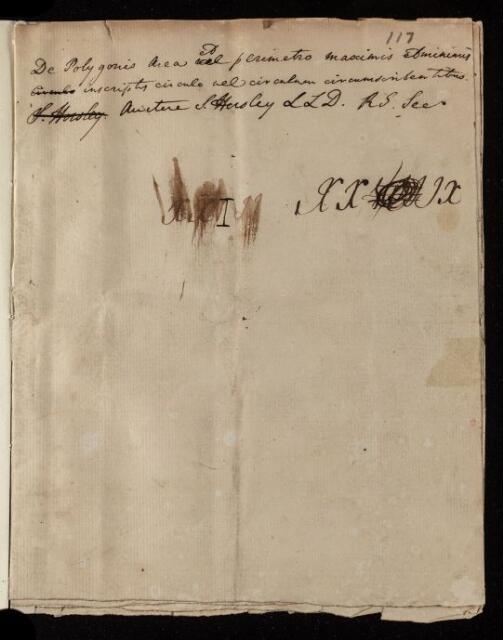 117
De Polygonis Area et vel perimetro maximis et minimis
circulo inscriptis circulo vel circulum circumscribentibus.
S. Horsley. Auctore S Horsley LLD. R.S. Sec.
XXI XX IX